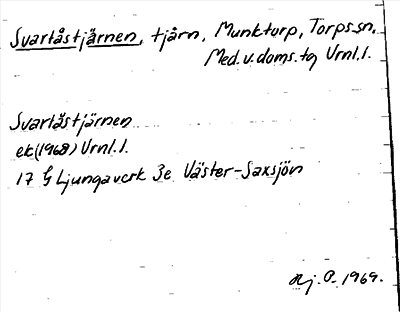 Svartåstjärnen, tjärn, Munktorp, Torps sn.
Med. v. doms. tg Vrnl. l.
Svartåstjärnen
ek (1968) Vrnl. l.
17 G Ljungaverk 3e Väster-Saxsjön
Hj. O. 1969.